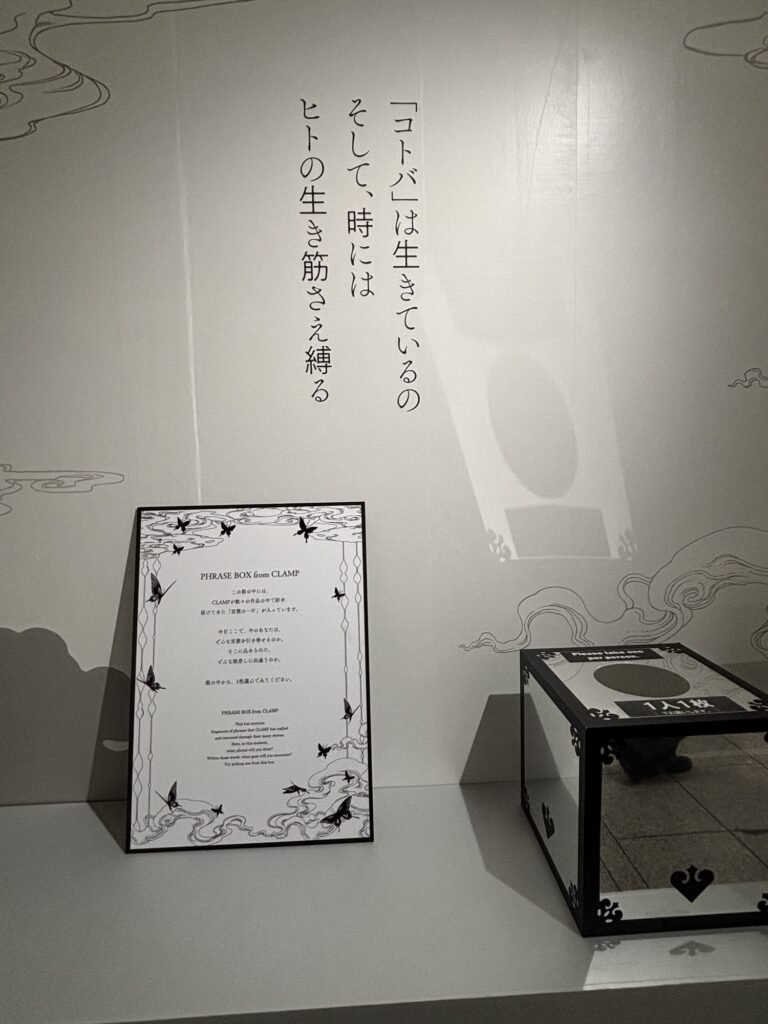 「コトバ」は生きているの
そして、時には
ヒトの生き筋さえ縛る
PHRASE BOX from CLAMP
この箱の中には、
CLAMPが数々の作品の中で紡ぎ、
届けてきた「言葉の一片」が入っています。
今日ここで、今のあなたは、
どんな言葉を引き寄せるのか。
そこに込められた、
どんな眼差しに出逢うのか。
箱の中から、1枚選んでみてください。
PHRASE BOX from CLAMP
This box contains
fragments of phrases that CLAMP has crafted
and conveyed through their many stories.
Here, in this moment,
what phrase will you draw?
Within those words, what gaze will you encounter?
Try picking one from this box.
Please take one
per person.
1人1枚